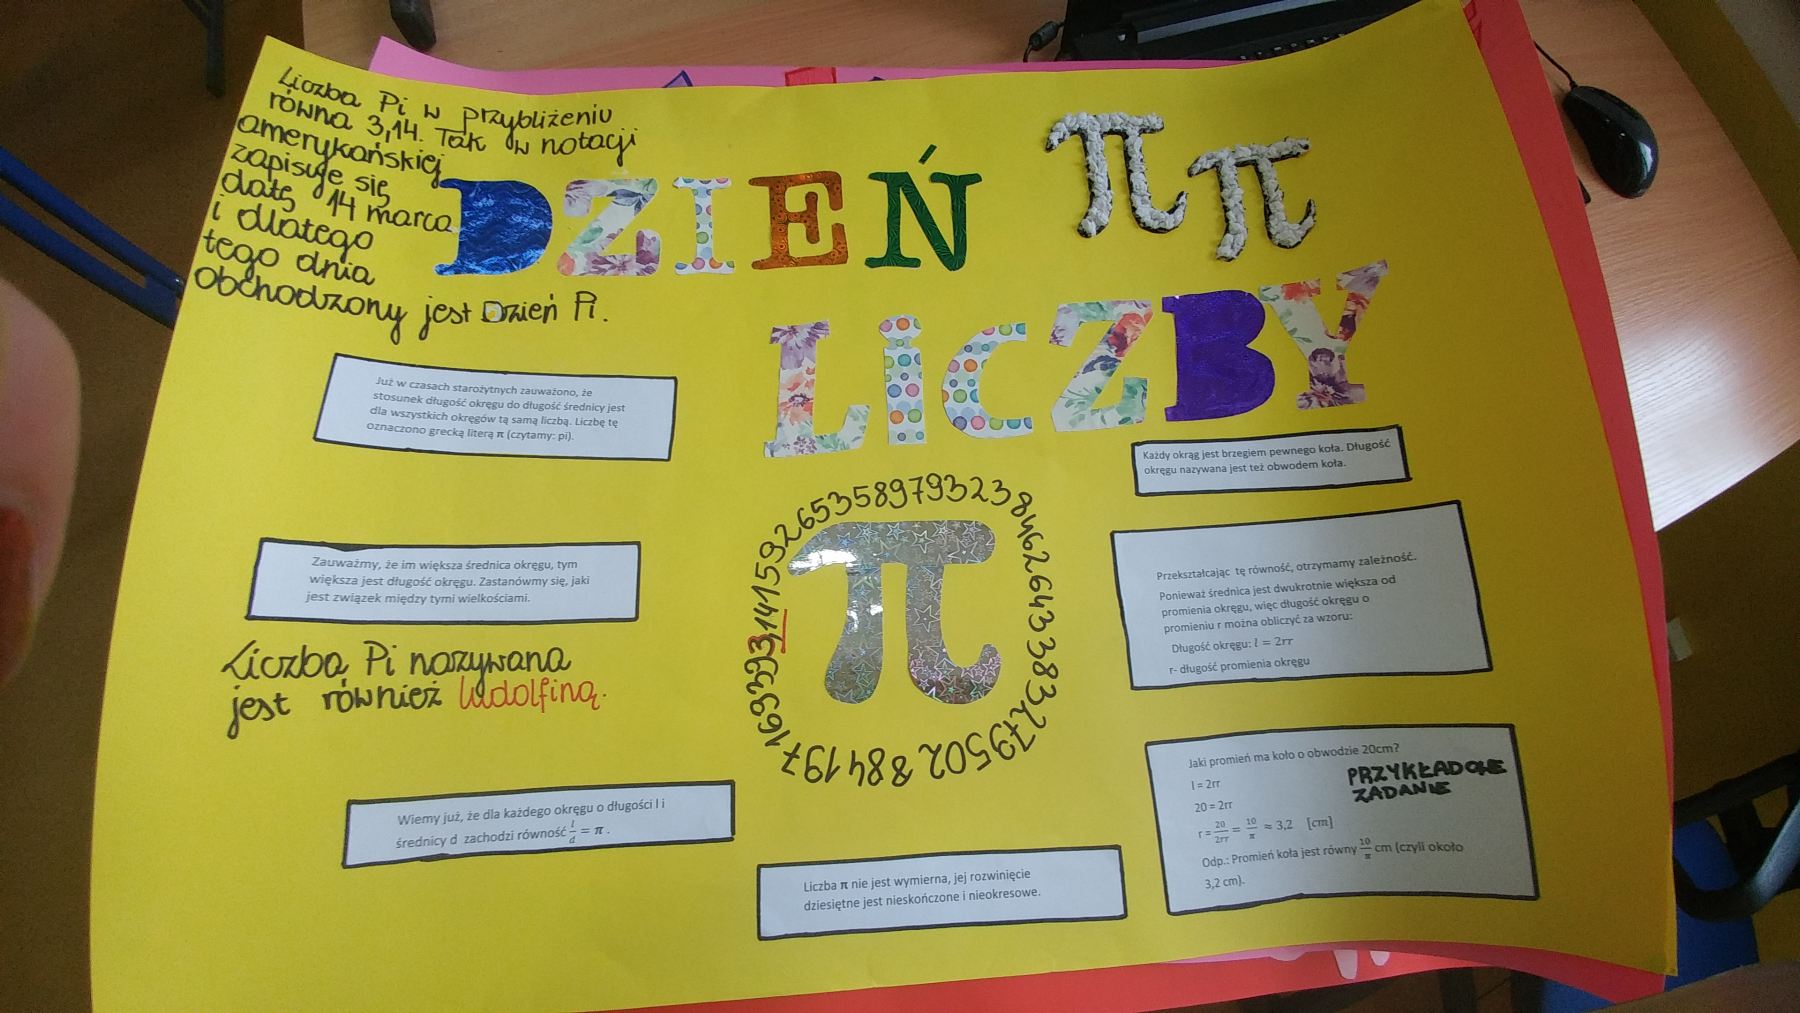 Liczba Pi w przybliżeniu
równa 3,14. Tak w notacji
amerykańskiej
zapisuje się
datę 14 marca
i dlatego
tego dnia
obchodzony jest Dzień Pi.
DZIEŃ
π π
LiCZBY
Już w czasach starożytnych zauważono, że
stosunek długość okręgu do długość średnicy jest
dla wszystkich okręgów tą samą liczbą. Liczbę tę
oznaczono grecką literą π (czytamy: pi).
Każdy okrąg jest brzegiem pewnego koła. Długość
okręgu nazywana jest też obwodem koła.
Zauważmy, że im większa średnica okręgu, tym
większa jest długość okręgu. Zastanówmy się, jaki
jest związek między tymi wielkościami.
31415926535897932384626433832795028841971693993
π
Przekształcając tę równość, otrzymamy zależność.
Ponieważ średnica jest dwukrotnie większa od
promienia okręgu, więc długość okręgu o
promieniu r można obliczyć za wzoru:
Długość okręgu: l = 2rr
r- długość promienia okręgu
Liczba Pi nazywana
jest również ludolfiną.
Wiemy już, że dla każdego okręgu o długości l i
średnicy d zachodzi równość l/d = π .
Jaki promień ma koło o obwodzie 20cm?
PRZYKŁADOWE
ZADANIE
l = 2rr
20 = 2rr
r = 20/2rr = 10/π ≈ 3,2 [cm]
Odp.: Promień koła jest równy 10/π cm (czyli około
3,2 cm).
Liczba π nie jest wymierna, jej rozwinięcie
dziesiętne jest nieskończone i nieokresowe.